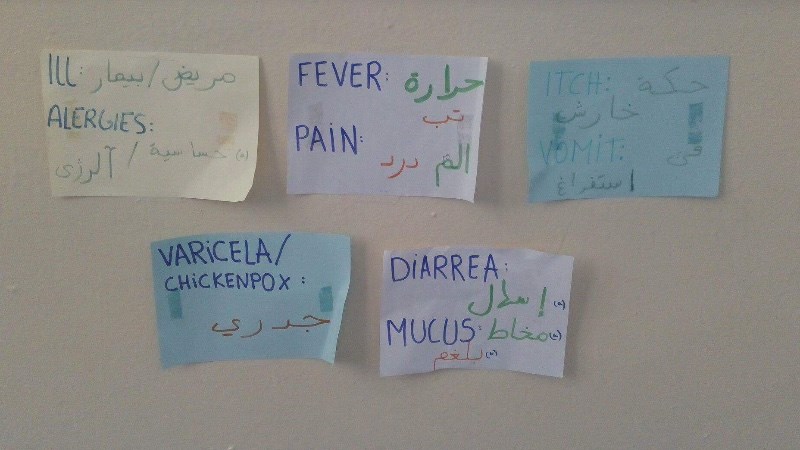 ILL: مريض/بيمار
ALERGIES:
حساسية (ه) / آلرزی
FEVER: حرارة
تب
PAIN:
الم درد
ITCH: حكة
خارش
VOMIT: قی
استفراغ
VARICELA/
CHICKENPOX:
جدري
DIARREA:
إسهال (ه)
MUCUS: مخاط (ه)
بلغم (ه)